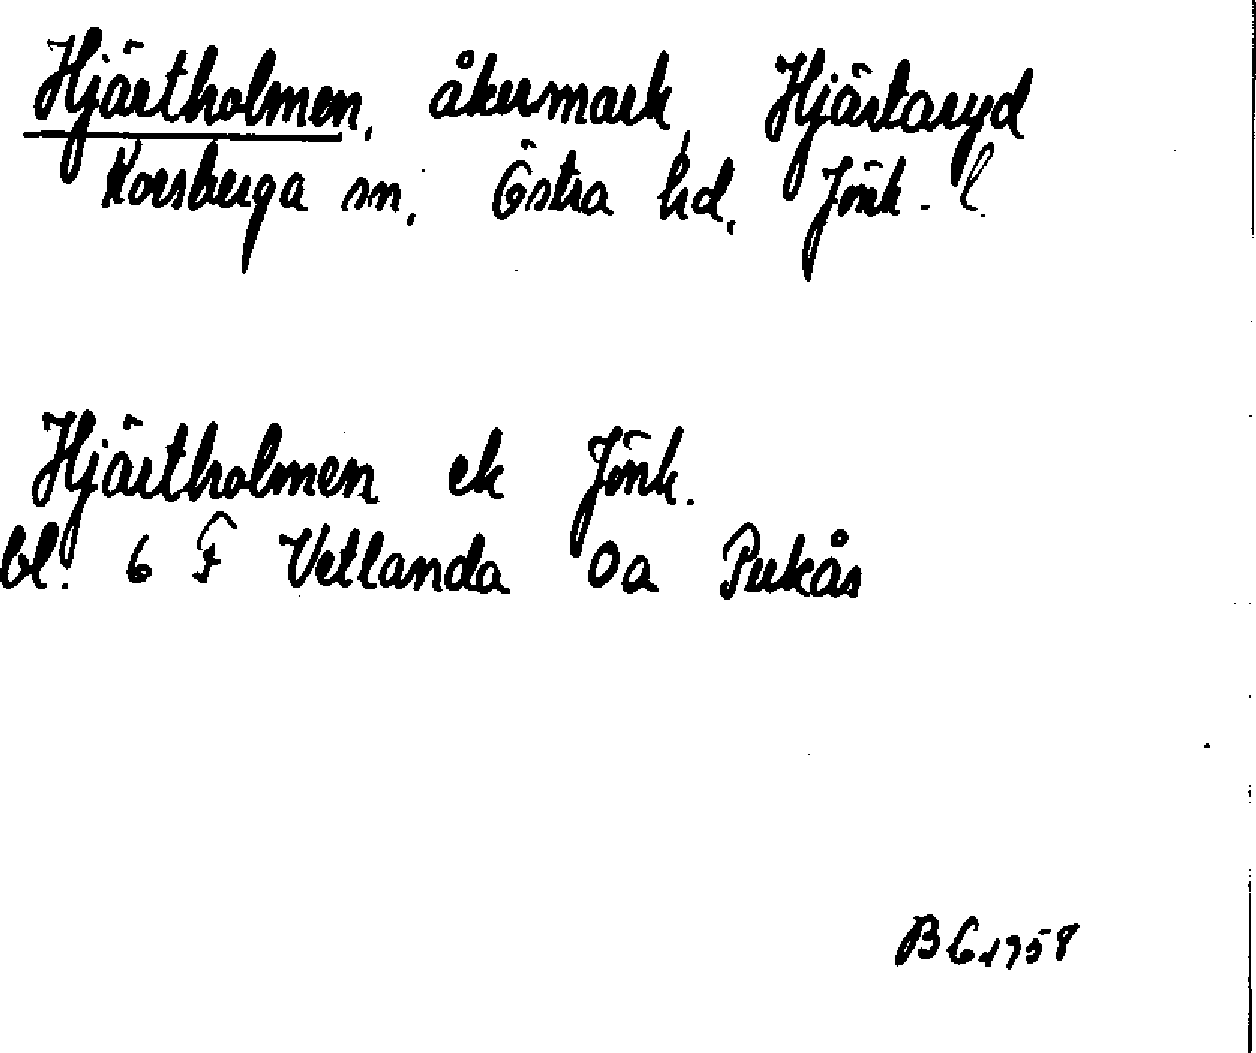 Hjärtholmen, åkermark, Hjärtaryd
Korsberga sn, Östra hd, Jönk. l.
Hjärtholmen ek Jönk.
bl. 6 F Vetlanda 0a Pukås
BG 1958